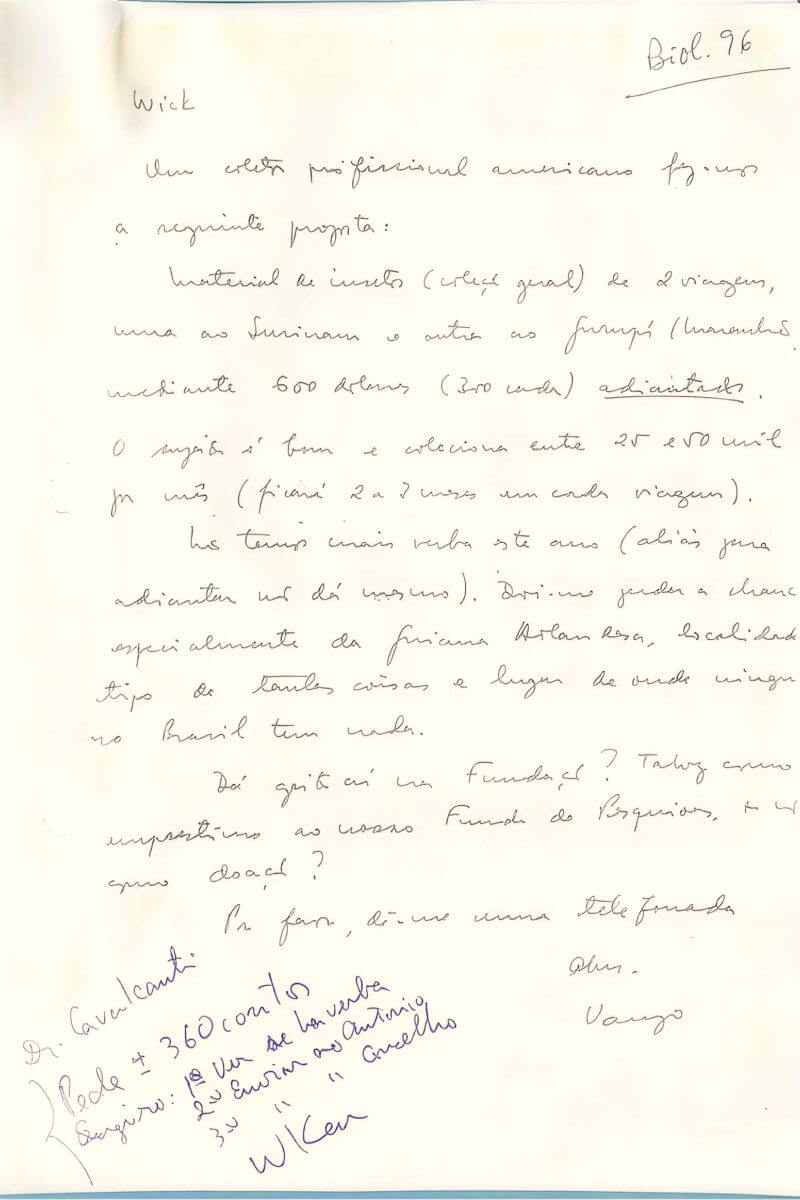 Biol. 96
Wick
Um coletor profissional americano fez-nos
a seguinte proposta:
Material de insetos (coleção geral) de 2 viagens,
uma ao Surinam e outra ao Gurupi (Maranhão
mediante 600 dólares (300 cada) adiantado.
O sujeito é bom e coleciona entre 25 e 50 mil
por mês (ficará 2 a 3 meses em cada viagem).
Não temos mais verba este ano (aliás para
adiantar não dá mesmo). Dói-me perder a chance
especialmente da Guiana Holandesa, localidade
tipo de tantas coisas e lugar de onde ningu
no Brasil tem nada.
Dá jeito aí na Fundação? Talvez como
empréstimo ao nosso Fundo de Pesquisas, e não
como doação?
Por favor, dê-me uma telefonada
Abs.
Vanzo
Dr. Cavalcanti
Pede ± 360 contos
Sugiro: 1º Ver se há verba
2º Enviar ao Antonio
3º " " Conselho
WKerr